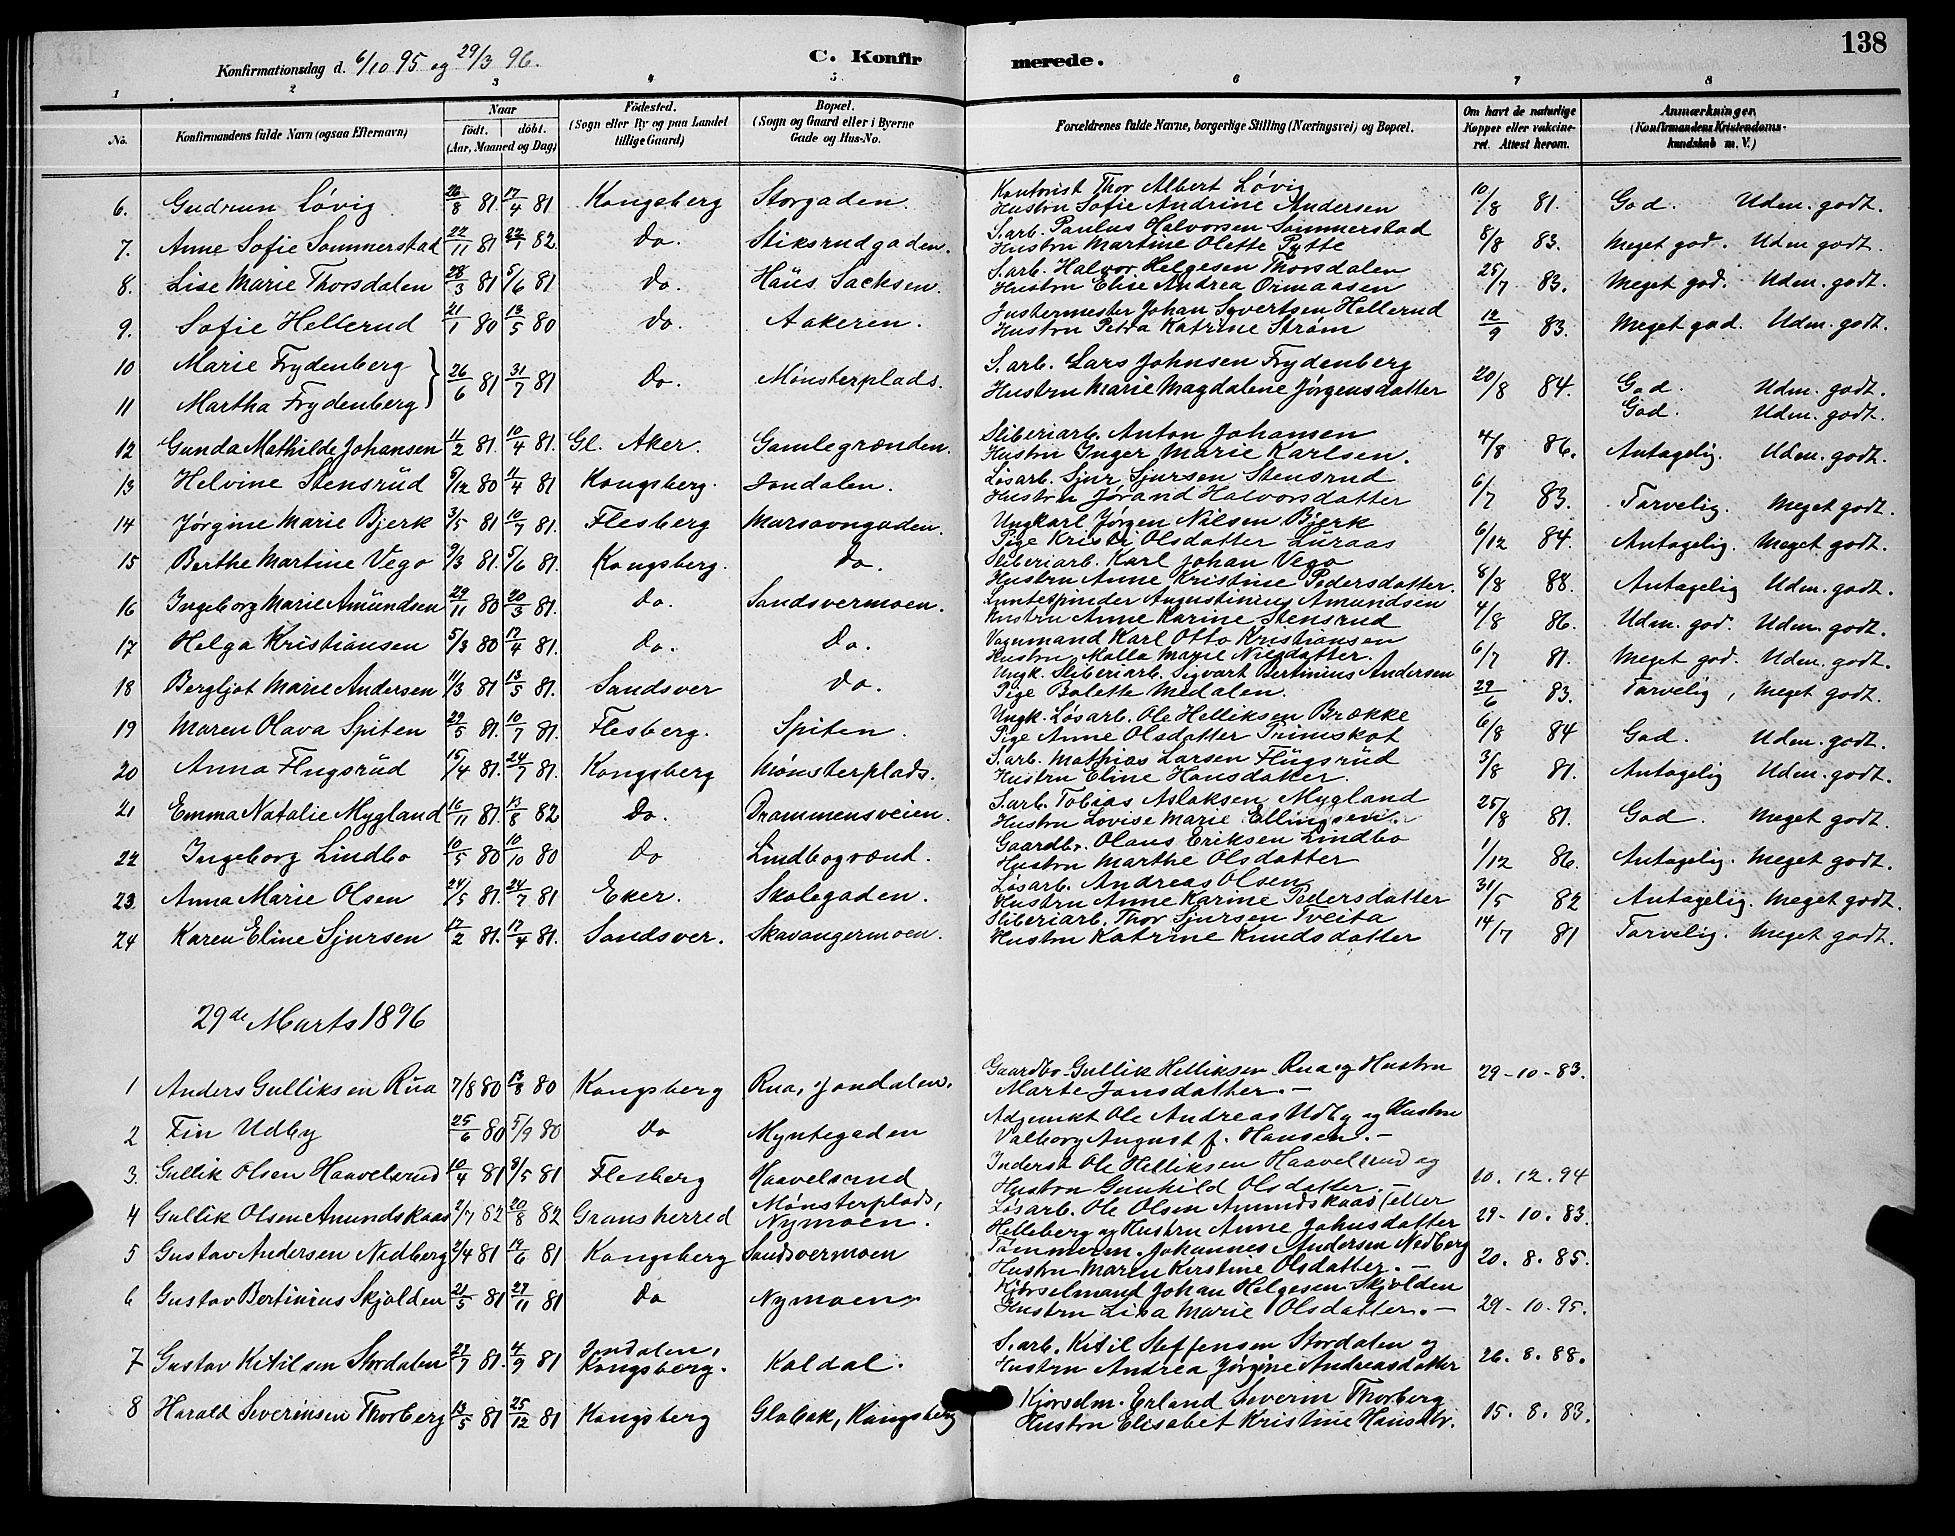 138
Konfirmationsdag d. 6/10 95 og 29/3 96.
C. Konfirmerede.
1 2 3 4 5 6 7 8
No. Konfirmandens fulde Navn (ogsaa Efternavn) Naar født. døbt. (Aar, Maaned og Dag) Fødested. (Sogn eller By og paa Landet tillige Gaard) Bopæl. (Sogn og Gaard eller i Byerne Gade og Hus-No. Forældrenes fulde Navne, borgerlige Stilling (Næringsvei) og Bopæl. Om havt de naturlige Kopper eller vakcineret. Attest herom. Anmærkninger. (Konfirmandens Kristendomskundskab m. V.)
6. Gudrun Løvig 26/8 81. 17/4 81 Kongsberg Storgaden. Kontorist Thor Albert Løvig Hustru Sofie Andrine Andersen 10/8 81. God. Udm. godt.
7. Anne Sofie Sommerstad 22/11 81 22/1 82 Do. Stiksrudgaden. S.arb. Paulus Halvorsen Sommerstad Hustru Martine Olette Pytte 8/8 83. Meget god. Udm. godt.
8. Lise Marie Thorsdalen 28/3 81 5/6 81 Do. Haüs Sachsen. S.arb. Halvor Helgesen Thorsdalen Hustru Elise Andrea Ormaasen 25/7 83. Meget god. Udm. godt.
9. Sofie Hellerud 21/1 80 13/5 80 Do. Aakeren. Justermester Johan Syvertsen Hellerud Hustru Petra Katrine Strøm 12/9 83. Meget god. Udm. godt.
10 Marie Frydenberg 26/6 81 31/7 81 Do. Mønsterplads. S.arb. Lars Johnsen Frydenberg Hustru Marie Magdalene Jørgensdatter 20/8 84. God. Udm. godt.
11 Martha Frydenberg God. Udm. godt.
12 Gunda Mathilde Johansen 11/2 81. 10/4 81. Gl. Aker. Gamlegrænden. Sliberiarb. Anton Johansen Hustru Inger Marie Karlsen. 4/8 86. Antagelig. Udm. godt.
13 Helvine Stensrüd 5/12 80 11/4 81 Kongsberg. Jondalen. Løsarb. Sjur Sjursen Stensrud Hustru Jørand Halvorsdatter 6/7 83. Tarvelig. Meget godt.
14 Jørgine Marie Bjerk 3/5 81 10/7 81. Flesberg Marsovngaden. Ungkarl Jørgen Nilsen Bjerk Pige Kristi Olsdatter Luraas 6/12 84. Antagelig. Meget godt.
15 Berthe Martine Vego 9/3 81. 5/6 81. Kongsberg. Do. Sliberiarb. Karl Johan Vego Hustru Anne Kristine Pedersdatter. 8/8 88. Antagelig Udm. godt.
16 Ingeborg Marie Amündsen 29/11 80 20/3 81. Do. Sandsvermoen. Lyntespinder Augustinius Amundsen Hustru Anne Karine Stensrud 4/8 86. Udm. god. Udm. godt.
17 Helga Kristiansen 5/3 80 17/4 81. Do. Do. Vognmand Karl Otto Kristiansen Hustru Malla Marie Nilsdatter. 6/7 81. Meget god. Udm. godt.
18 Bergljot Marie Andersen 11/3 81 13/5 81. Sandsver Do. Ungk. Sliberiarb. Sigvart Bertinius Andersen Pige Bolette Medalen. 29/6 83. Tarvelig, Meget godt.
19 Maren Olava Spiten 29/5 81. 10/7 81. Flesberg. Spiten. Ungk. Løsarb. Ole Helliksen Brække Pige Anne Olsdatter Trimskot 6/8 84 God. Udm. godt.
20 Anna Flugsrüd 15/4 81. 24/7 81. Kongsberg Mønsterplads. S.arb. Mathias Larsen Flügsrüd Hustru Eline Hansdatter. 3/8 81. Antagelig Udm. godt.
21 Emma Natalie Mygland 16/11 81. 13/8 82 Do. Drammensveien. S.arb. Tobias Aslaksen Mygland Hustru Lovise Marie Ellingsen. 25/8 81. God. Meget godt.
22 Ingeborg Lindbo 10/5 80 10/10 80 Do Lindbogrænd. Gaardbr. Olaus Eriksen Lindbo Hustru Marthe Olsdatter 1/12 86. Antagelig. Meget godt.
23. Anna Marie Olsen 24/5 81. 24/7 81 Eker. Skolegaden. Løsarb. Andreas Olsen Hustru Anne Karine Pedersdatter 31/5 82 Antagelig. Meget godt.
24 Karen Eline Sjursen 12/2 81. 17/4 81. Sandsver. Skavangermoen. Sliberiarb. Thor Sjursen Tveita Hustru Katrine Knudsdatter 14/7 81 Tarvelig. Meget godt.
29de Marts 1896
1 Anders Gulliksen Rua 7/8 80 13/8 80 Kongsberg Rua, Jondalen. Gaardbr. Gullik Helliksen Rua og Hustru Marte Jonsdatter. 29-10-83.
2 Fin Udby 25/6 80 5/9 80 Do Myntegaden Adjunkt Ole Andreas Udby og Hustru Valborg August f. Hansen.
3. Gullik Olsen Haavelsrud 10/4 81 8/5 81 Flesberg Haavelsrud Inderst Ole Helliksen Haavelsrud og Hustru Gunhild Olsdatter. 10. 12. 94
4 Gullik Olsen Amundskaas 2/7 82 20/8 82 Gransherred Mønsterplads, Nymoen. Løsarb. Ole Olsen Amundskaas (eller Helleberg og Hustru Anne Johnsdatter 29-10. 83.
5 Gustav Andersen Nedberg 2/4 81 19/6 81 Kongsberg Sandsvermoen Tømmerm. Johannes Andersen Nedberg Hustru Maren Kirstine Olsdatter. 20. 8. 85.
6 Gustav Bertinius Skjolden 21/5 81 27/11 81 Do Nymoen Kjørselmand Johan Helgesen Skjolden Hustru Lisa Marie Olsdatter. 29-10-95.
7 Gustav Kitilsen Stordalen 27/7 81. 4/9 81 Jondalen, Kongsberg. Koldal. S.arb. Kitil Steffensen Stordalen og Hustru Andrea Jørgine Andreasdatter 26. 8. 88.
8 Harald Severinsen Thorberg 13/5 81 25/12 81 Kongsberg Glabak, Kongsberg Kjørselm. Erland Severin Thorberg Hustru Elisabet Kristine Hansdtr. 15. 8. 83.